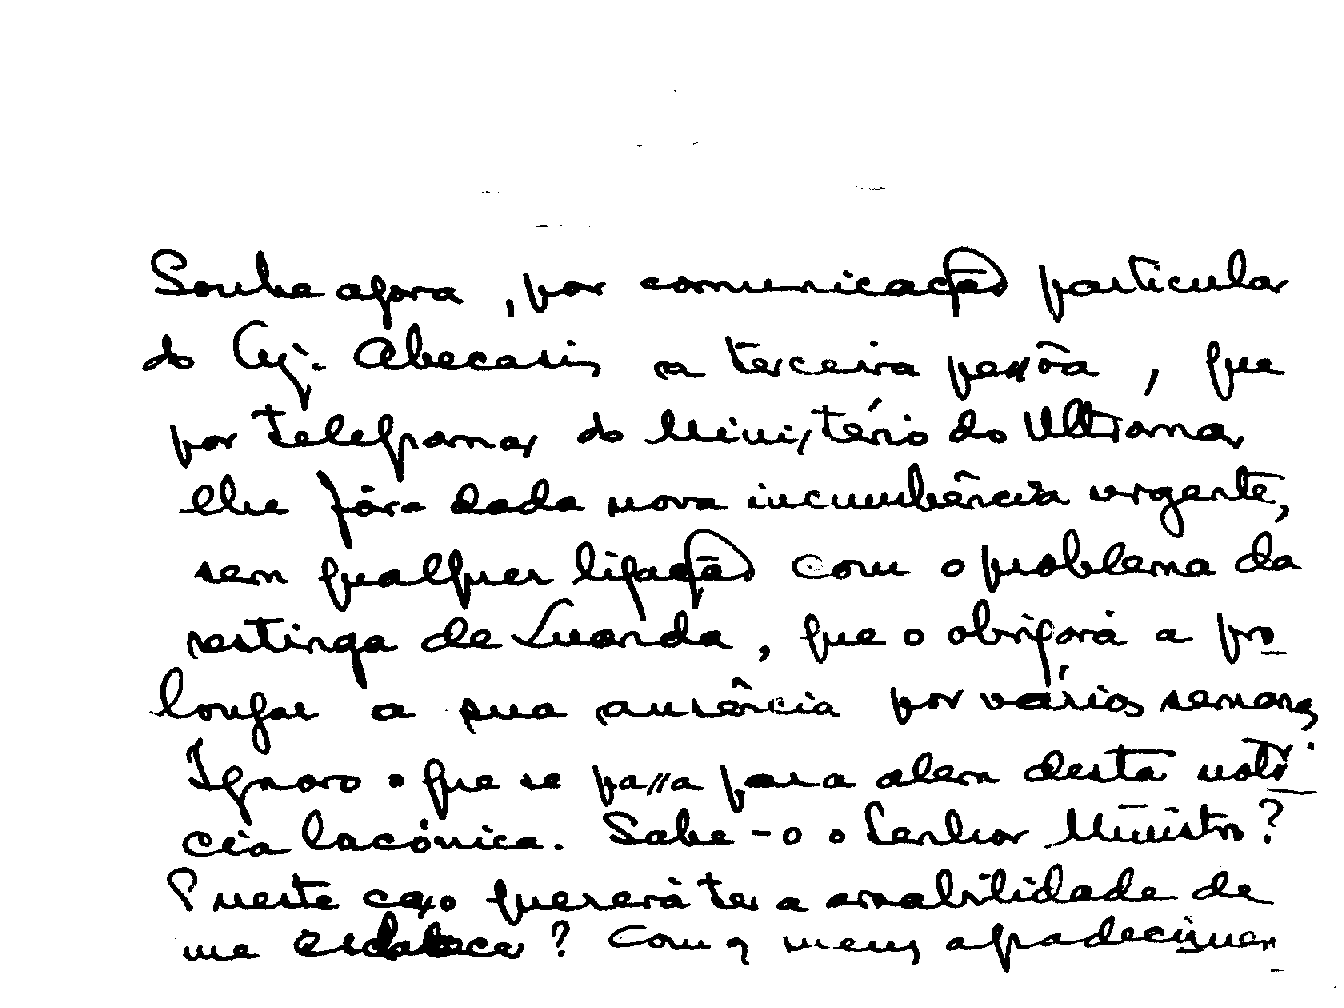 Soube agora, por comunicação particular
do Eng. Abecasis a terceira pessôa, que
por telegramas do Ministério do Ultramar
lhe fôra dada nova incumbência urgente,
sem qualquer ligação com o problema da
restinga de Luanda, que o obrigará a pro
longar a sua ausência por várias semanas
Ignoro o que se passa para alem desta notí
cia lacónica. Sabe-o o Senhor Ministro?
E neste caso quererá ter a amabilidade de
me esclarecer? Com os meus agradecimen